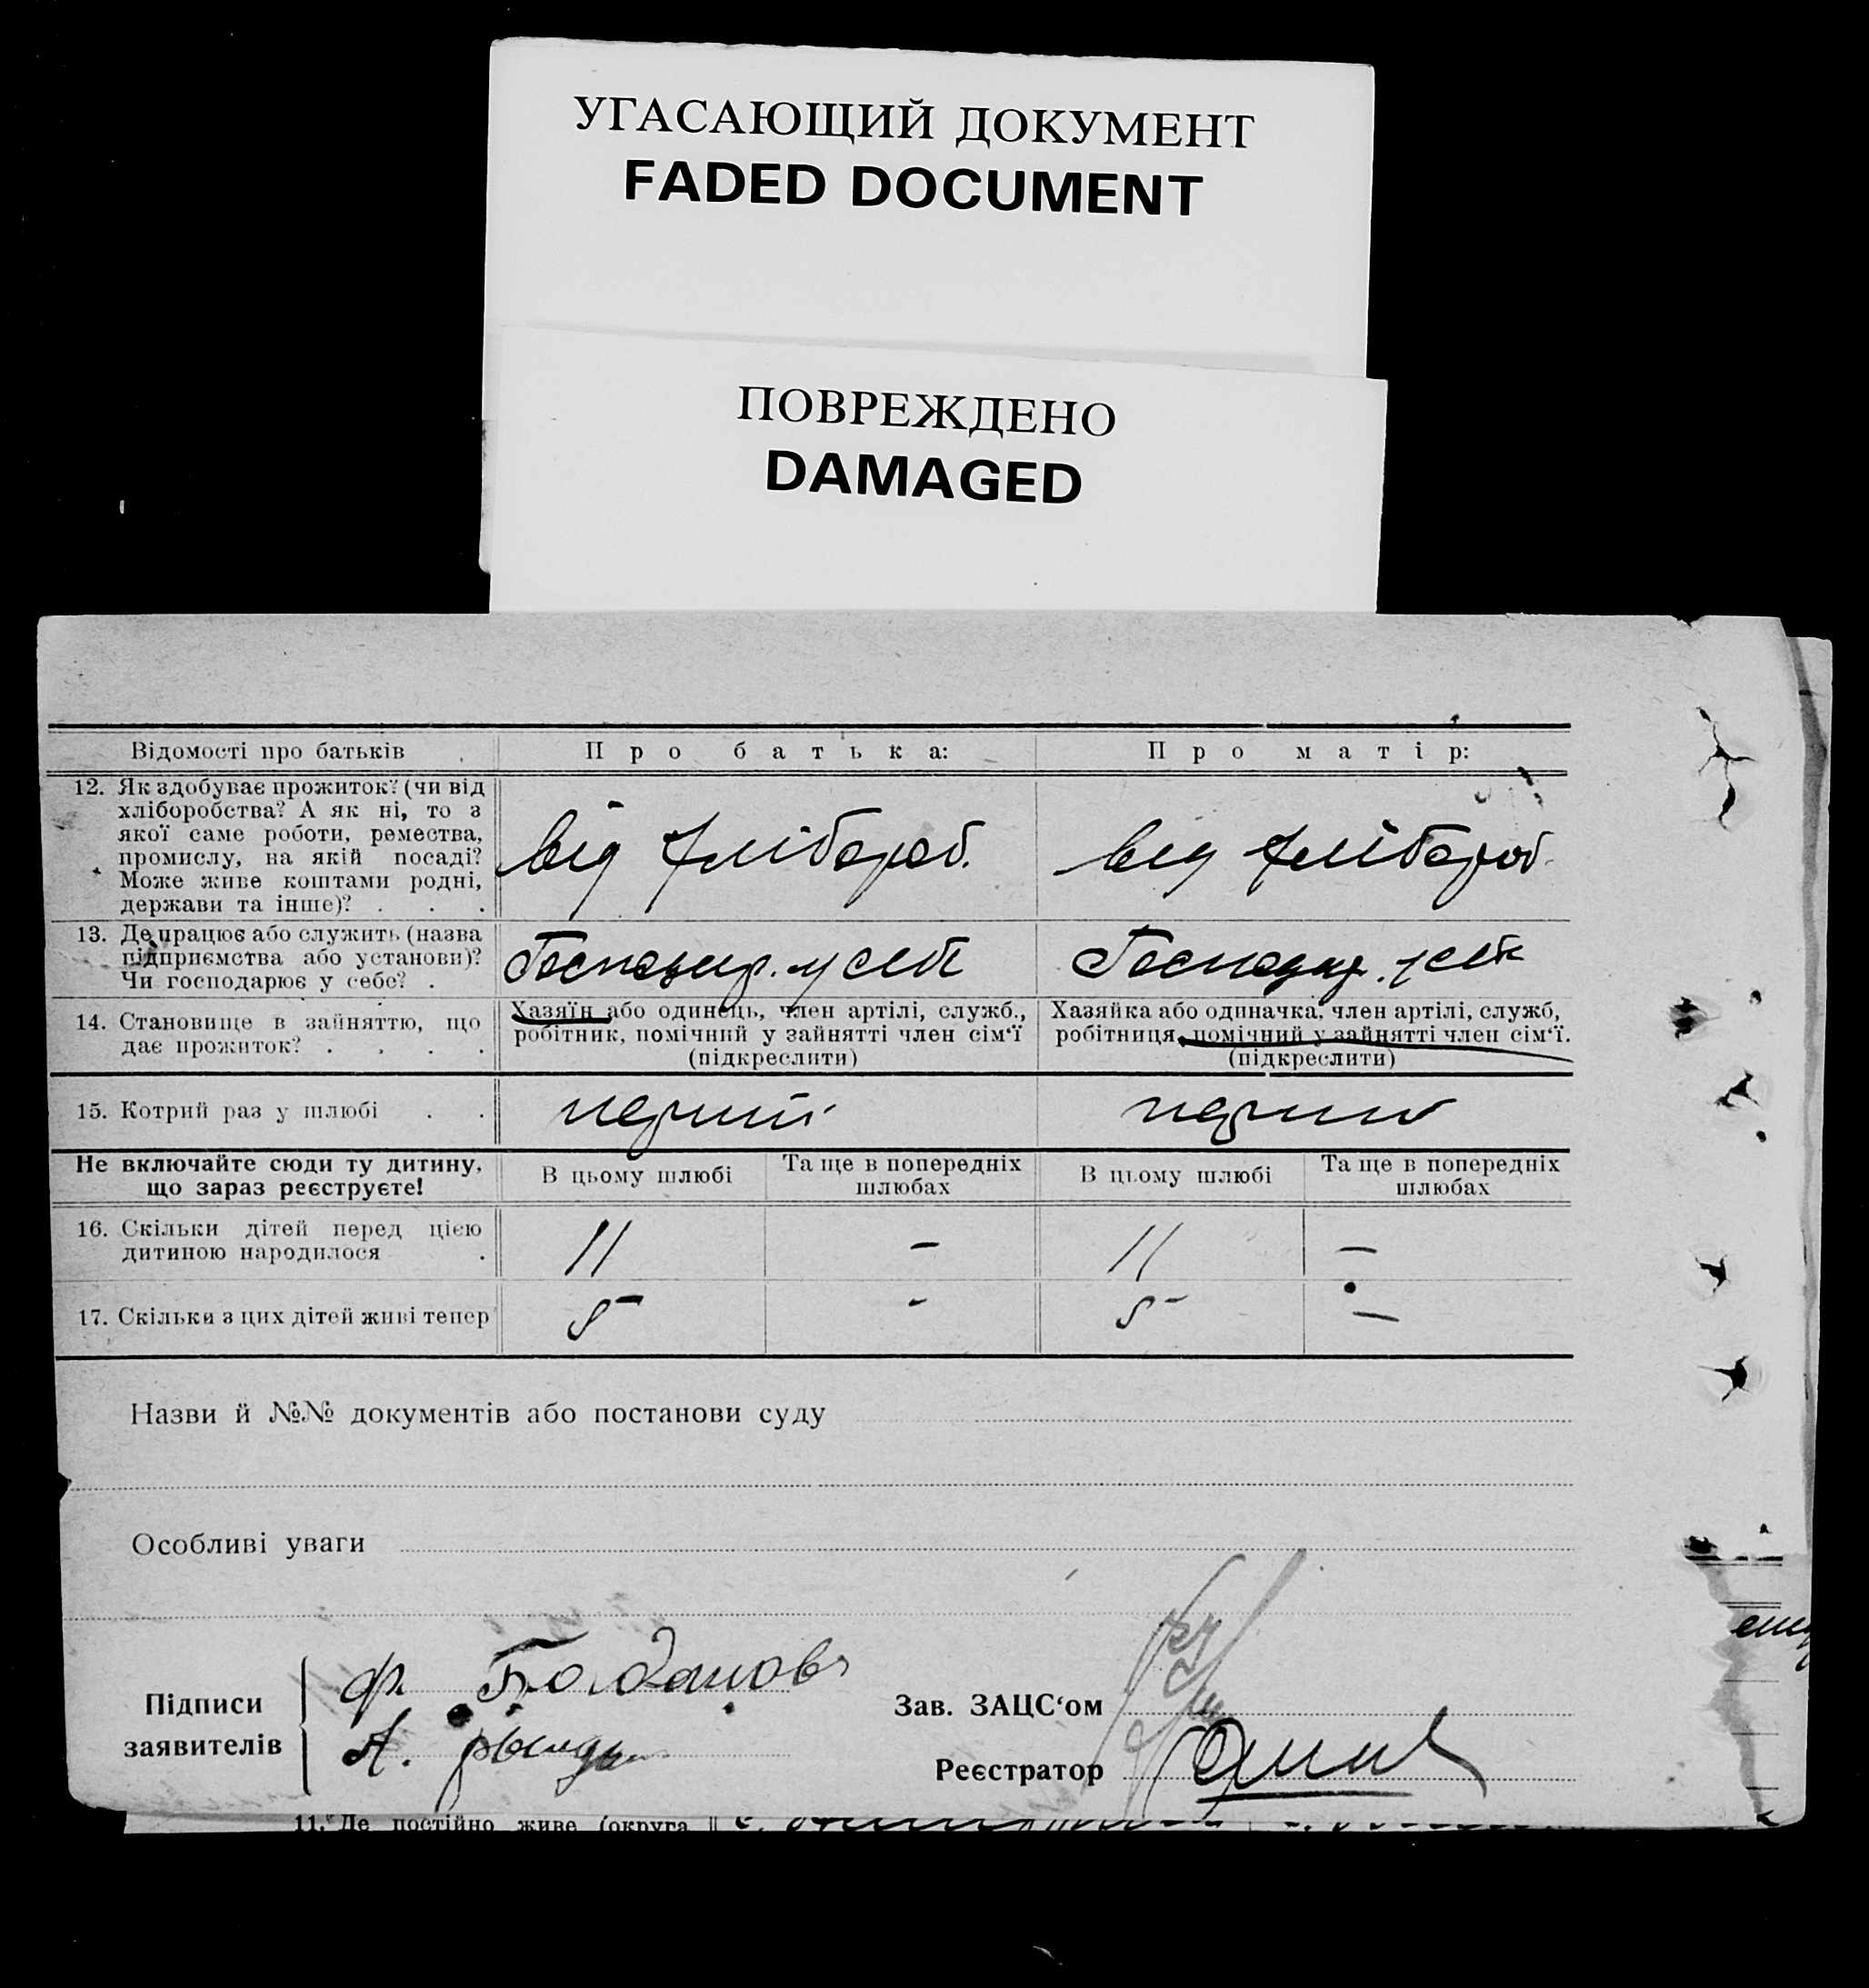 УГАСАЮЩИЙ ДОКУМЕНТ
FADED DOCUMENT
ПОВРЕЖДЕНО
DAMAGED
Відомості про батьків
Про батька:
Про матір:
12. Як здобуває прожиток? (чи від
хліборобства? А як ні, то з
якої саме роботи, ремества,
промислу, на якій посаді?
Може живе коштами родні,
держави та інше)? . . .
від хлібороб.
від хлібороб.
13. Де працює або служить (назва
підприємства або установи)?
Чи господарює у себе? .
Господар. у себе
Господар. у себе
14. Становище в зайняттю, що
дає прожиток? . . . .
Хазяїн або одинець, член артілі, служб.,
робітник, помічний у зайнятті член сім‘ї
(підкреслити)
Хазяйка або одиначка, член артілі, служб,
робітниця, помічний у зайнятті член сім‘ї.
(підкреслити)
15. Котрий раз у шлюбі . .
перший
перший
Не включайте сюди ту дитину,
що зараз реєструєте!
В цьому шлюбі
Та ще в попередніх
шлюбах
В цьому шлюбі
Та ще в попередніх
шлюбах
16. Скільки дітей перед цією
дитиною народилося .
11
–
11
–
17. Скільки з цих дітей живі тепер
5
-
5
–
Назви й №№ документів або постанови суду
Особливі уваги
Підписи
заявителів
Ф.
А.
Зав. ЗАЦС‘ом
Реєстратор
11. Де постійно живе (округа